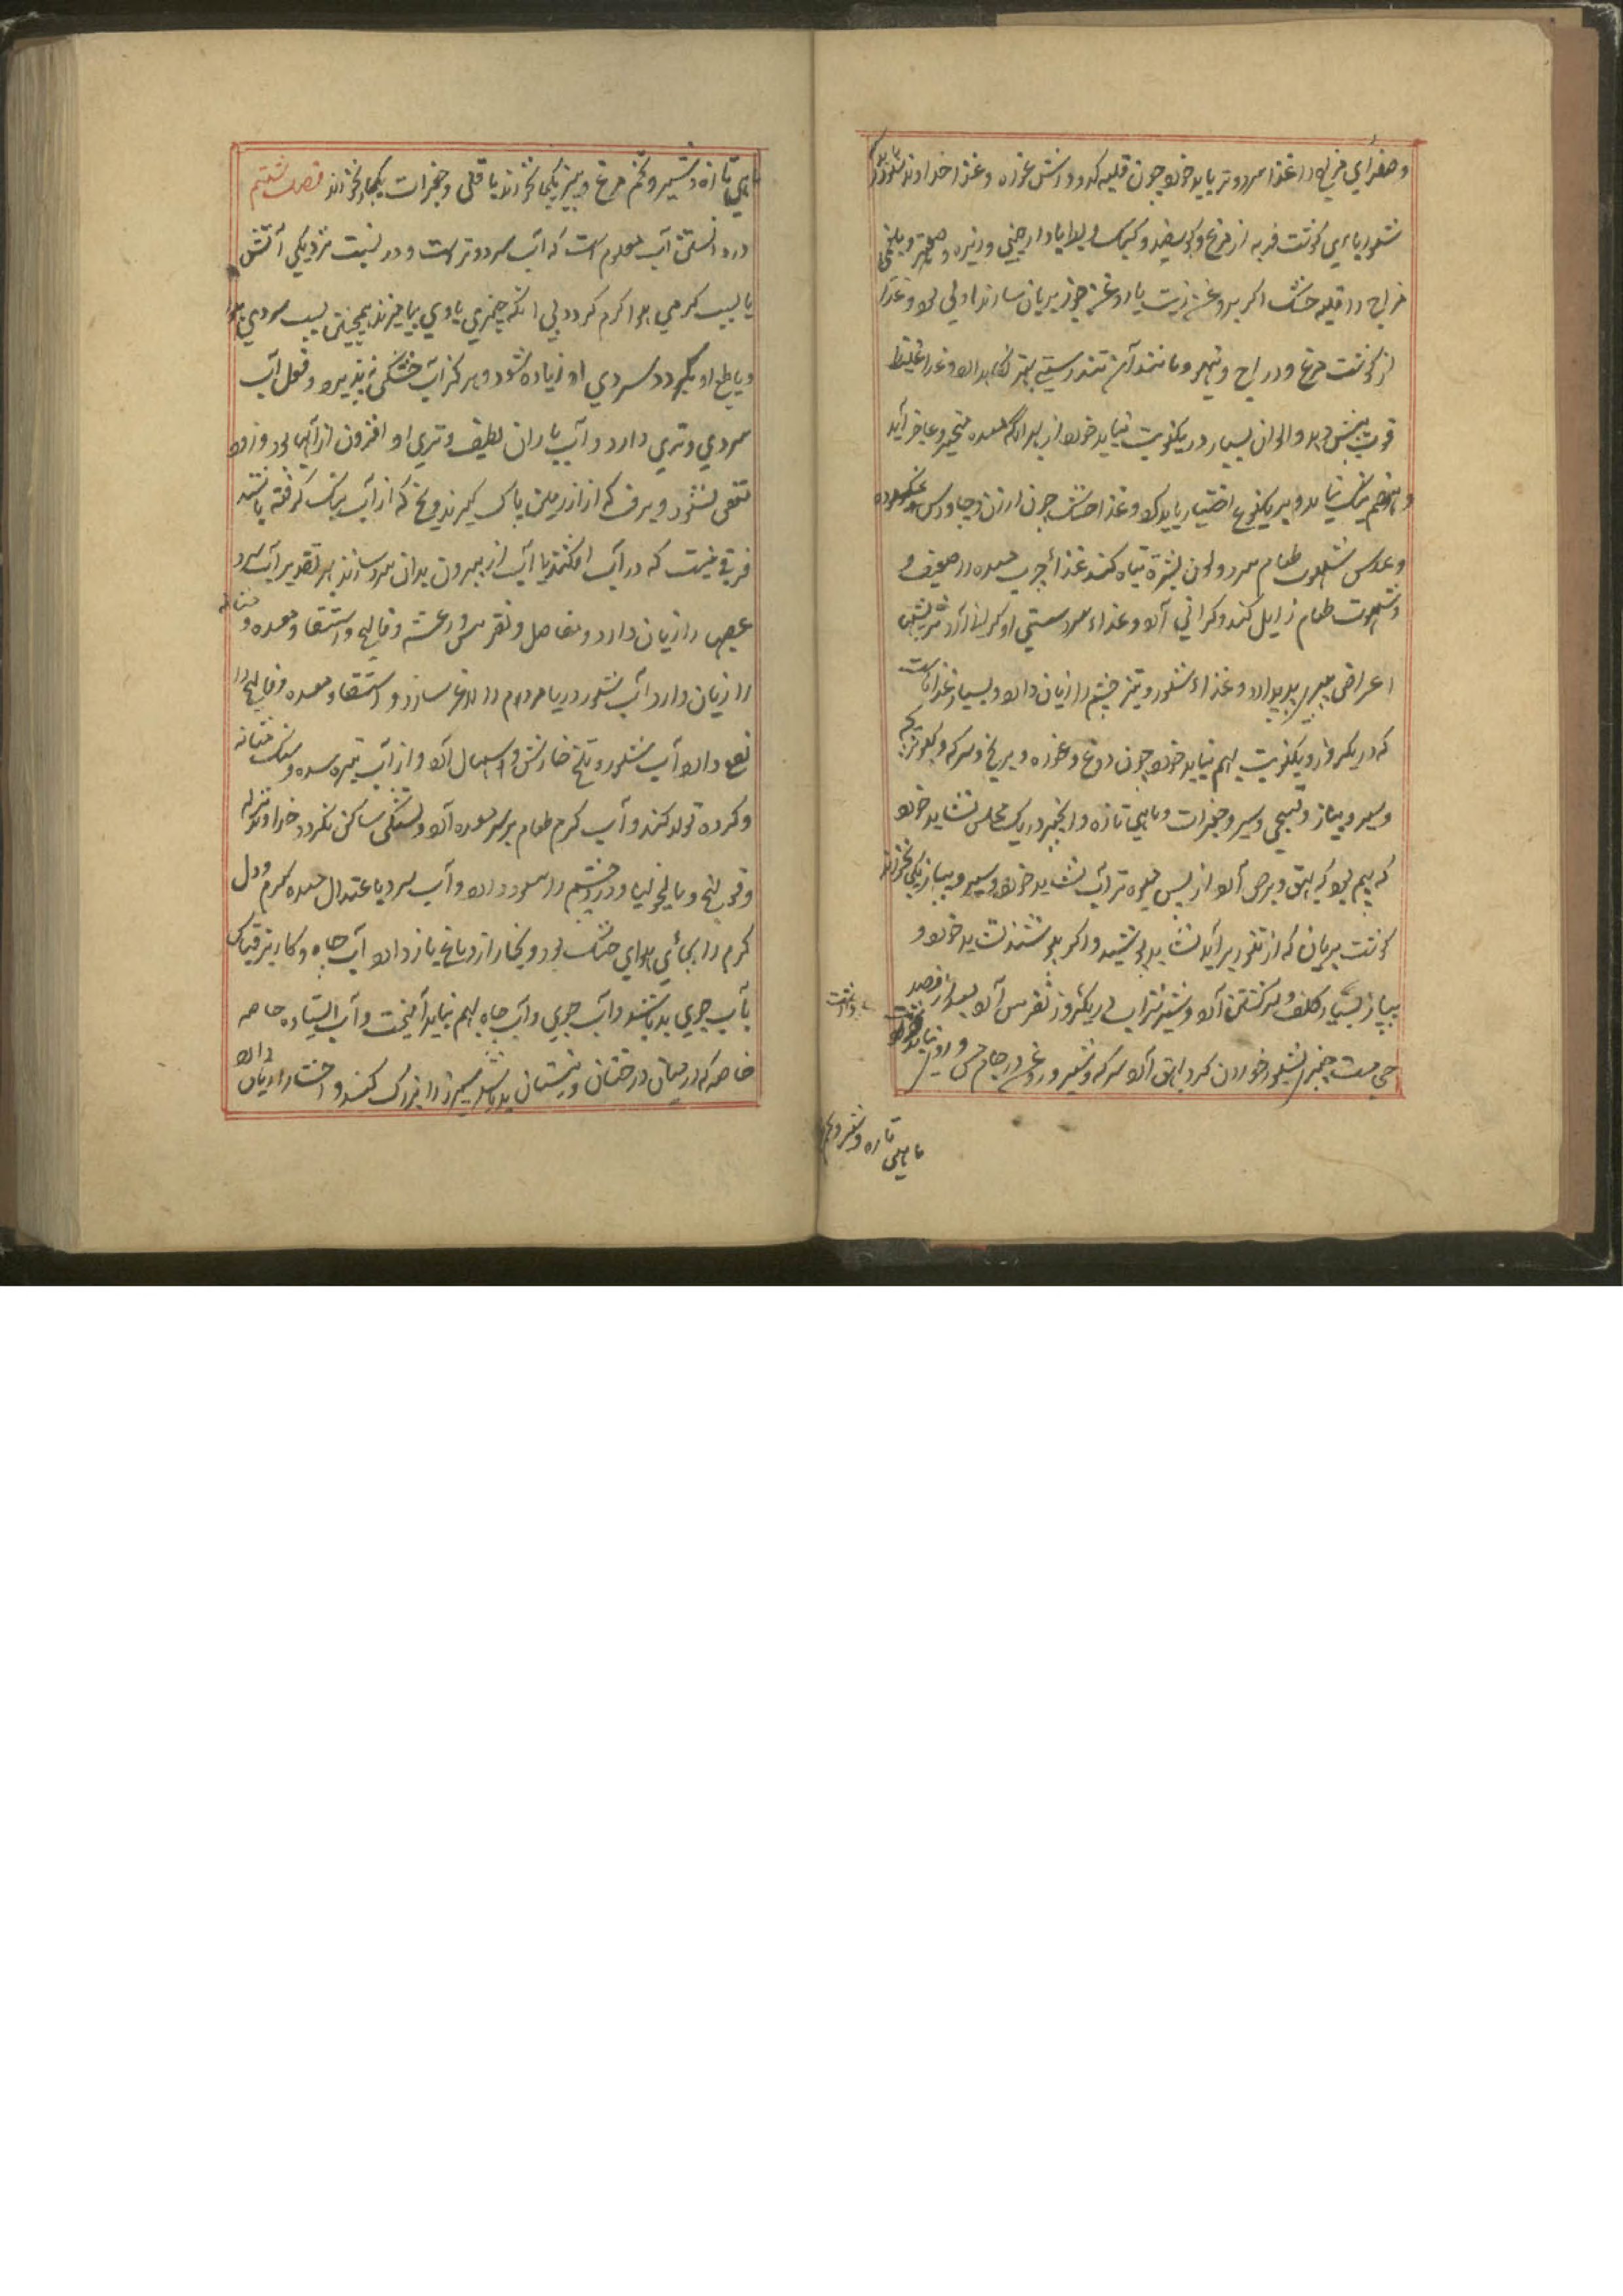 و صفرای مزاج را غذا سرد و تر باید خورد چون قلیه کدو و ترشی غوره و غذا خداوند سودا
شوربا بری گوشت فربه از مرغ و گوسفند و کبک و با دارچینی و زیره و صعتر و بلغمی
مزاج را قلیه خشک اگر بروغن زیت یا روغن جوز بریان سازند اولی بود و غذا
از گوشت مرغ و دراج و تیهو و مانند آن تندرستی بهتر نگاهدارد و غذا غلیظ
قوت بیش دهد و الوان بسیار در یکنوبت نباید خورد از بهر آنکه معده متحیر و عاجز آید
و هضم نیک نیابد و بر یکنوع اختیار باید کرد و غذا خشک چون ارزن و جاورس
و عدس شهوت طعام سرد و لون بشره تباه کند غذا چرب معده را ضعیف و
شهوت طعام زایل کند و گرانی آرد و غذاء سرد سستی آورد
اعراض پیری پدید آرد و غذاء شور و تیز چشم را زیان دارد و بسیار غذا است
که در یکروز و یکنوبت بهم نباید خورد چون دوغ و غوره و برنج و سرکه و گوشت
و سیر و پیاز و سیر و جغرات و ماهی تازه و انجیر در یک مجلس نشاید خورد
که بیم بود که بهق و برص آرد از پس میوه تر آب نشاید خورد و سیر و پیاز یکجا نخورند
گوشت بریان که از تنور برآید نشاید پوشید و اگر پوشند نشاید خورد و
پیاز بسیار کلف و سرگشتن آرد و شیر شراب در یکروز نقرس آرد بعد از فصد
چیزها شور خوردن گر و بهق آرد سرکه و شیر و روغن در جام مس و روی نباید
ماهی تازه و شیر و تخم
ماهی تازه و شیر و تخم مرغ و پنیر یکجا نخورند باقلی و جغرات یکجا نخورند فصل ششم
در دانستن آب معلوم است که آب سرد و تر است و در نسبت نزدیکی آتش
یا بسبب گرمی هوا گرم گردد بی آنکه چیزی با وی بیامیزند همچنین بسبب سردی هوا
و با طبع او بگردد سردی او زیاده شود و هرگز آب خشکی نپذیرد و فعل آب
سردی و تری دارد و آب باران لطیف و تری او افزون از آبها بود و زود
متعفن نشود و برف که از زمین پاک گیرند و یخ که از آب نیک گرفته باشند
فرقی نیست که در آب افکنند یا آب از بیرون بدان سرد سازند بهر تقدیر آب سرد
عصب را زیان دارد و مفاصل و نقرس و رعشه و فالج و استسقا و معده و مثانه
را زیان دارد آب شور دریا مردم را لاغر سازد و استسقا و معده و فالج را
نفع دارد آب شور و تلخ خارش و اسهال آرد و از آب تیره سده و سنگ مثانه
و گرده تولد کند و آب گرم طعام بر سر معده آرد و تشنگی ساکن نگردد خداوند
و قولنج و مالیخولیا و درد چشم را سود دارد و آب سرد باعتدال معده گرم و دل
گرم را بجای هوای خنک بود و بخار از دماغ باز دارد آب چاه و کاریز
بآب جوی بد باشد و آب جوی و آب چاه بهم نباید آمیخت و آب ایستاده خاصه
خاصه که در میان درختان و نیستان بد باشد سپرز را بزرگ کند و احشا را زیان دارد